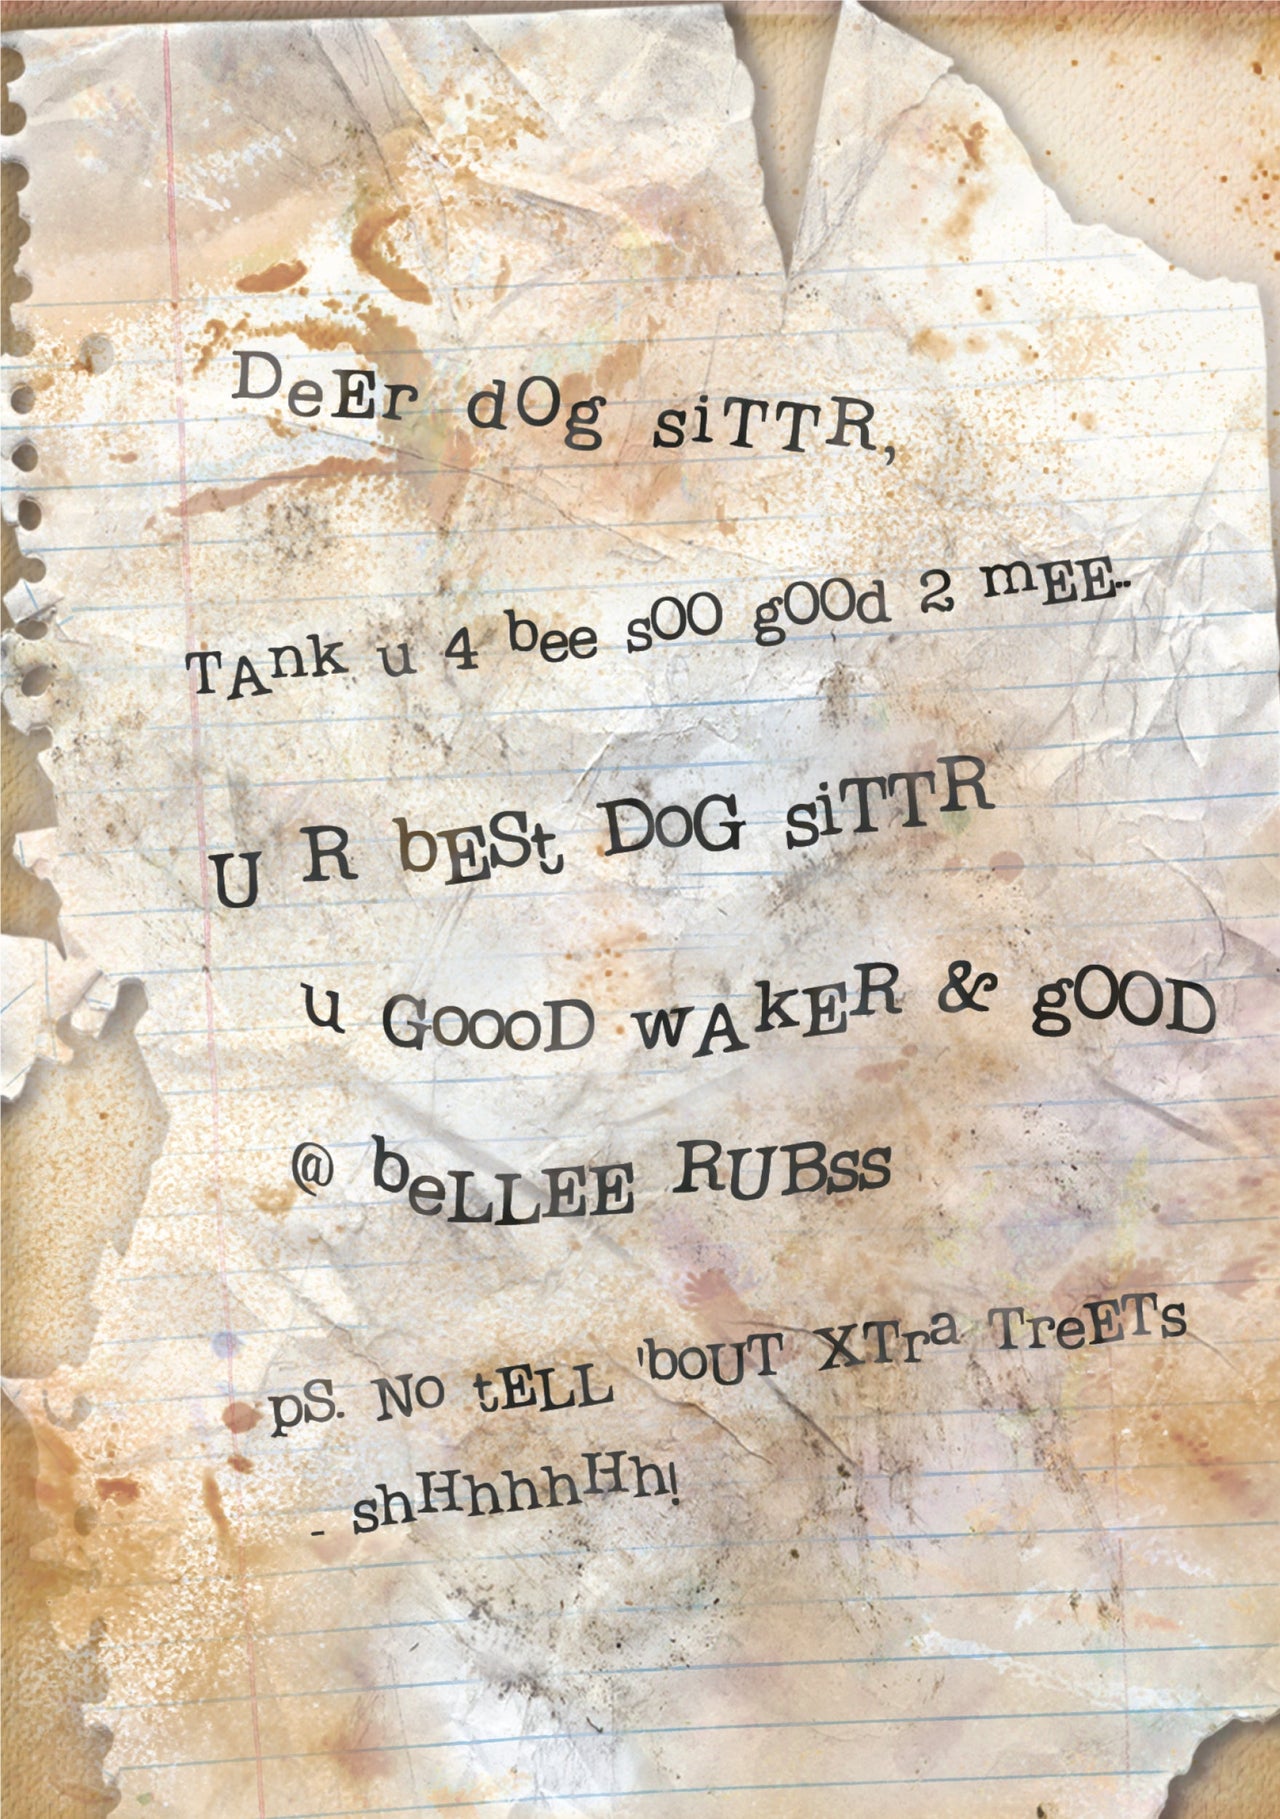 DeEr dOg siTTR,
TAnk u 4 bee sOO gOOd 2 mEE..
U R bESt DoG siTTR
u GoooD wAkER & gOOD
@ beLLEE RUBss
pS. No tELL 'boUT XTra TreETs
- shHhhhHh!